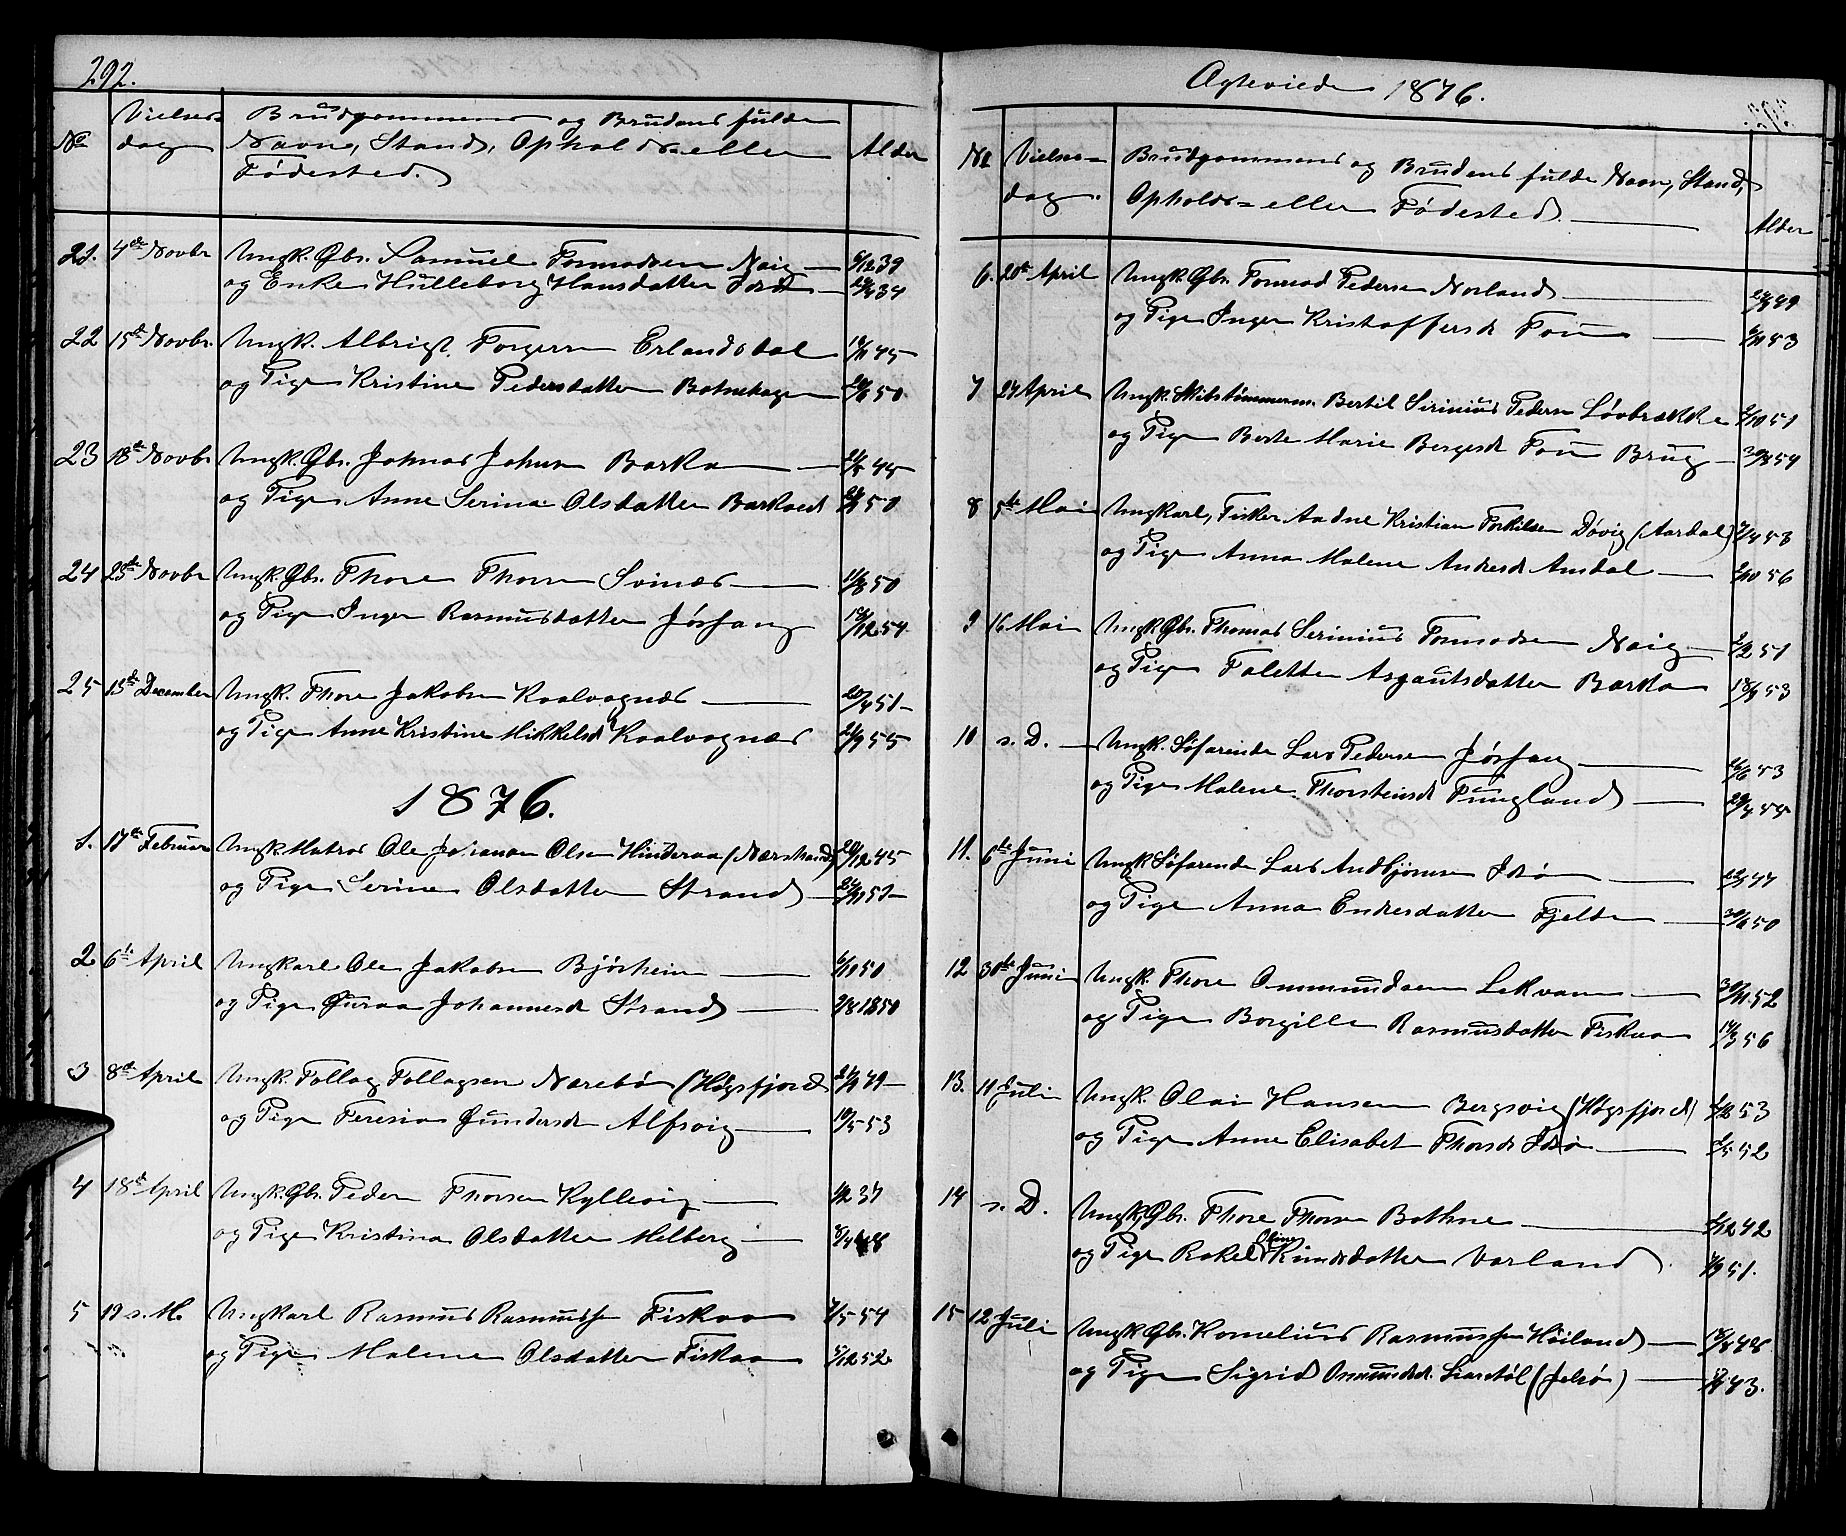 292.
No Vielses- dag Brudgommens og Brudens fulde Navne, Stand, Opholds eller Fødested. Alder
21. 4de Novbr Ungk. Gbr. Samuel Tormodsen Naig 39
og Enke Hulleborg Hansdatter 34
22 15de Novbr. Ungk. Albrigt Torgersen Erlandsdal 45
og Pige Kristine Pedersdatter Botnehagen 50
23 18de Novbr Ungk. Gbr. Johnas Johnsen Barka 45
og Pige Anne Serina Olsdatter Barkved 50
24 23de Novbr Ungk. Gbr. Thore Thorsen Svinæs 11/8 50
og Pige Inger Rasmusdatter Jøsfang /12 54
25 13de December Ungk. Thore Jakobsen Kaalvagnæs 20/4 51
og Pige Anne Kristine Mikkelsd Kaalvagnæs 55
1876.
1. 17de Februar Ungk. Matros Ole Johannes Olsen Hinderaa (Nærstrand) /12 45
og Pige Serine Olsdatter Strand 51
2 6te April Ungkarl Ole Jakobsen Bjørheim 50
og Pige Guroa Johannesd Strand 2/8 1850
3 8de April Ungk. Tollag Tollagsen Nærebø (Høgsfjord) 49
og Pige Teresia Gundersd Alfsvig 19/5 53
4 18de April Ungk. Gbr. Peder Thorsen Kyllevig 37
og Pige Kristina Olsdatter Melberg 48
5 19 s. M. Ungkarl Rasmus Rasmussen Fiskaa 7/5 54
og Pige Malene Olsdatter Fiskaa 5/12 52
Ægteviede 1876.
No Vielses- dag. Brudgommens og Brudens fulde Navn, Stand, Opholds- eller Fødested. Alder
6. 20de April Ungk. Gbr. Tormod Pedersen Norland 49
og Pige Inger Kristoffersd Tou 53
7 27 April Ungk. Skibstømmerm. Bertil Sirinius Pedersen Løvbrække 2/10 51
og Pige Berte Marie Bergesd Tou Brug 30/8 54
8 5te Mai Ungkarl, Fisker Aadne Kristian Torkilsen Døvig (Aardal) 7/4 53
og Pige Anna Malene Andersd Amdal 2/10 56
9 16 Mai Ungk. Gbr. Thomas Serinius Tormodsen Naig 2/2 51
og Pige Talette Asgautsdatter Barka 53
10 s. D. Ungk. Søfarende Lars Pedersen Jøsfang 53
og Pige Malene Thorsteinsd Tungland 55
11. 6te Juni Ungk Søfarende Lars Andbjørnsen Idsø 47
og Pige Anna Endresdatter Fjelde 50
12 30te Juni Ungk. Thore Ommundsen Lekvam 30/11 52
og Pige Borgille Rasmusdatter Fiskaa 14/3 56
13. 11 Juli Ungk. Olai Hansen Bergsvig (Høgsfjord) 53
og Pige Anne Elisabet Thorsd Idsø 2/5 52
14 s. D. Ungk. Gbr. Thore Thorsen Bothne 42
og Pige Rakel Oline Knudsdatter Varland 51.
15 12 Juli Ungk. Gbr. Kornelius Rasmussen Høiland 48
og Pige Sigrid Osmundsd. Liarstøl (Jelsø) 43.